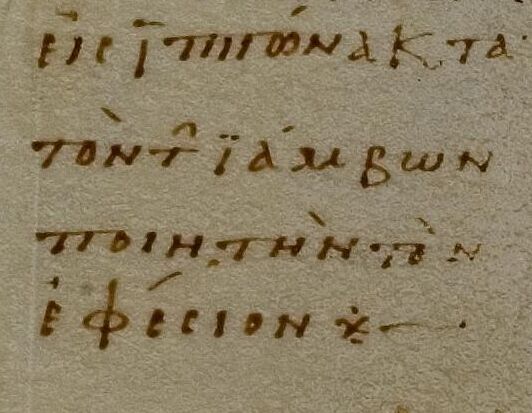 εἰς ἱππώνακτα
τὸν τ̑ ἰάμβων
ποιητὴν τὸν
ἐφέσιον